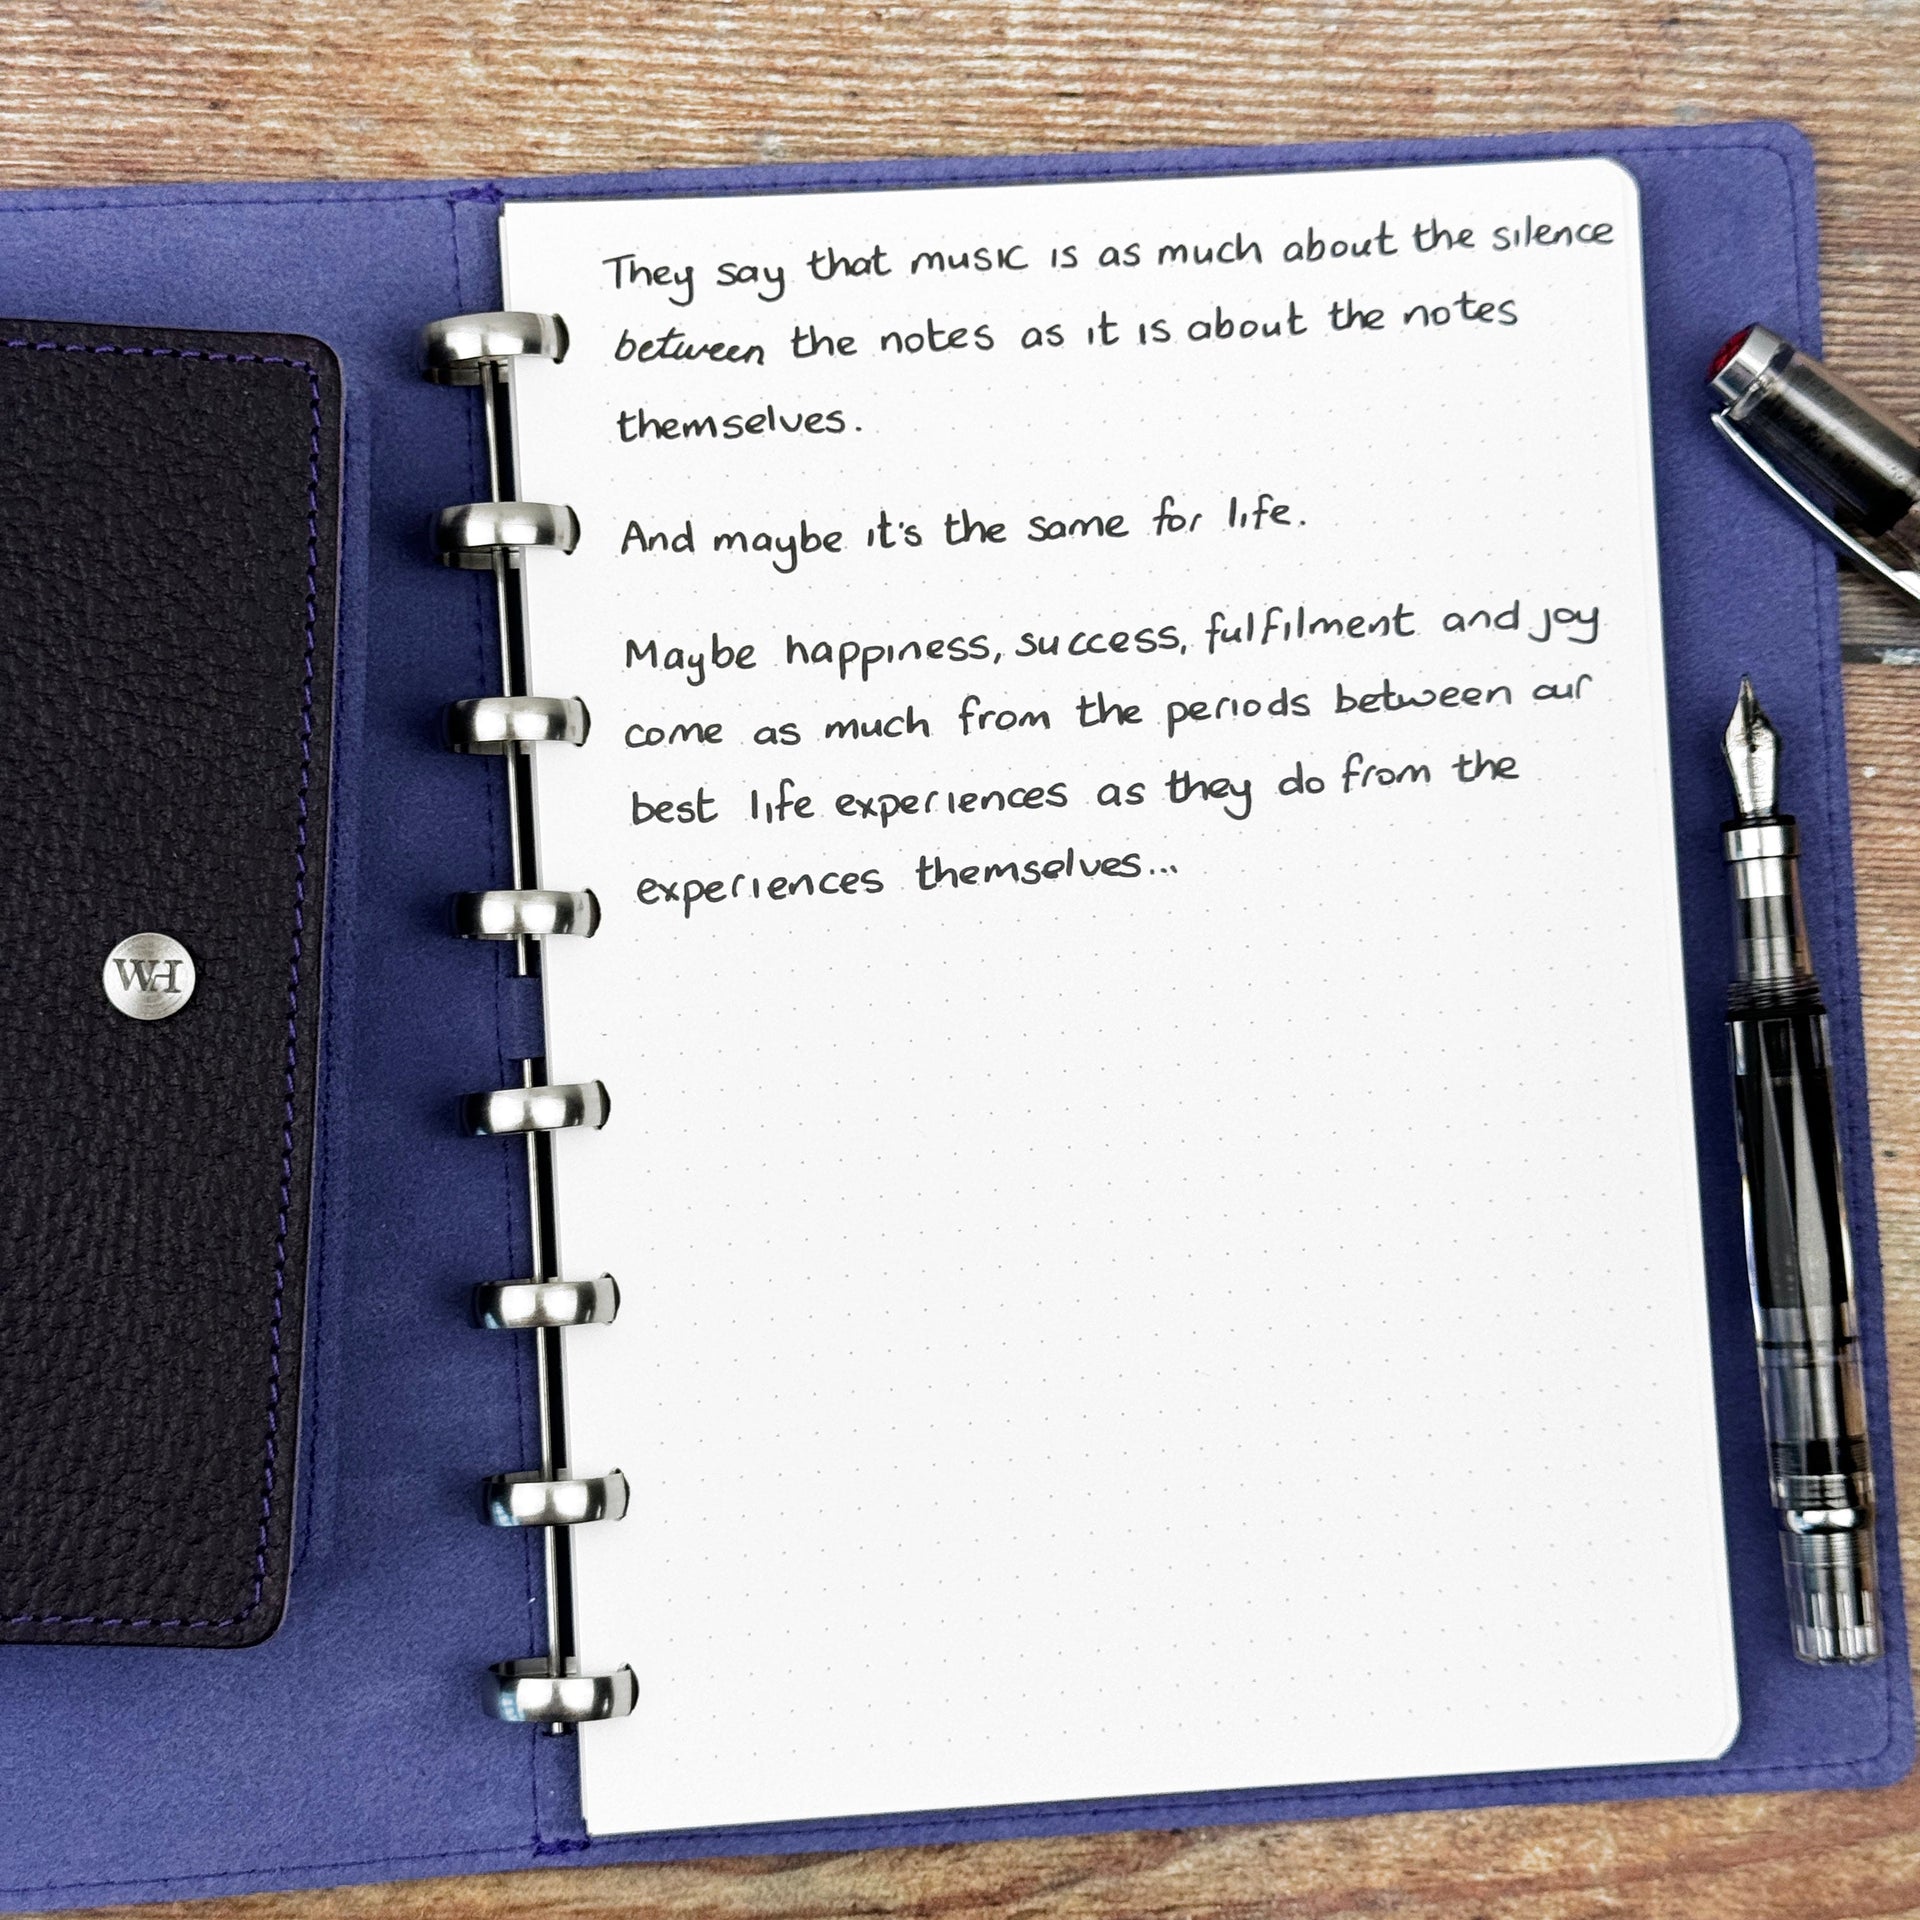 They say that music is as much about the silence
between the notes as it is about the notes
themselves.
And maybe it's the same for life.
Maybe happiness, success, fulfilment and joy
come as much from the periods between our
best life experiences as they do from the
experiences themselves...
WH